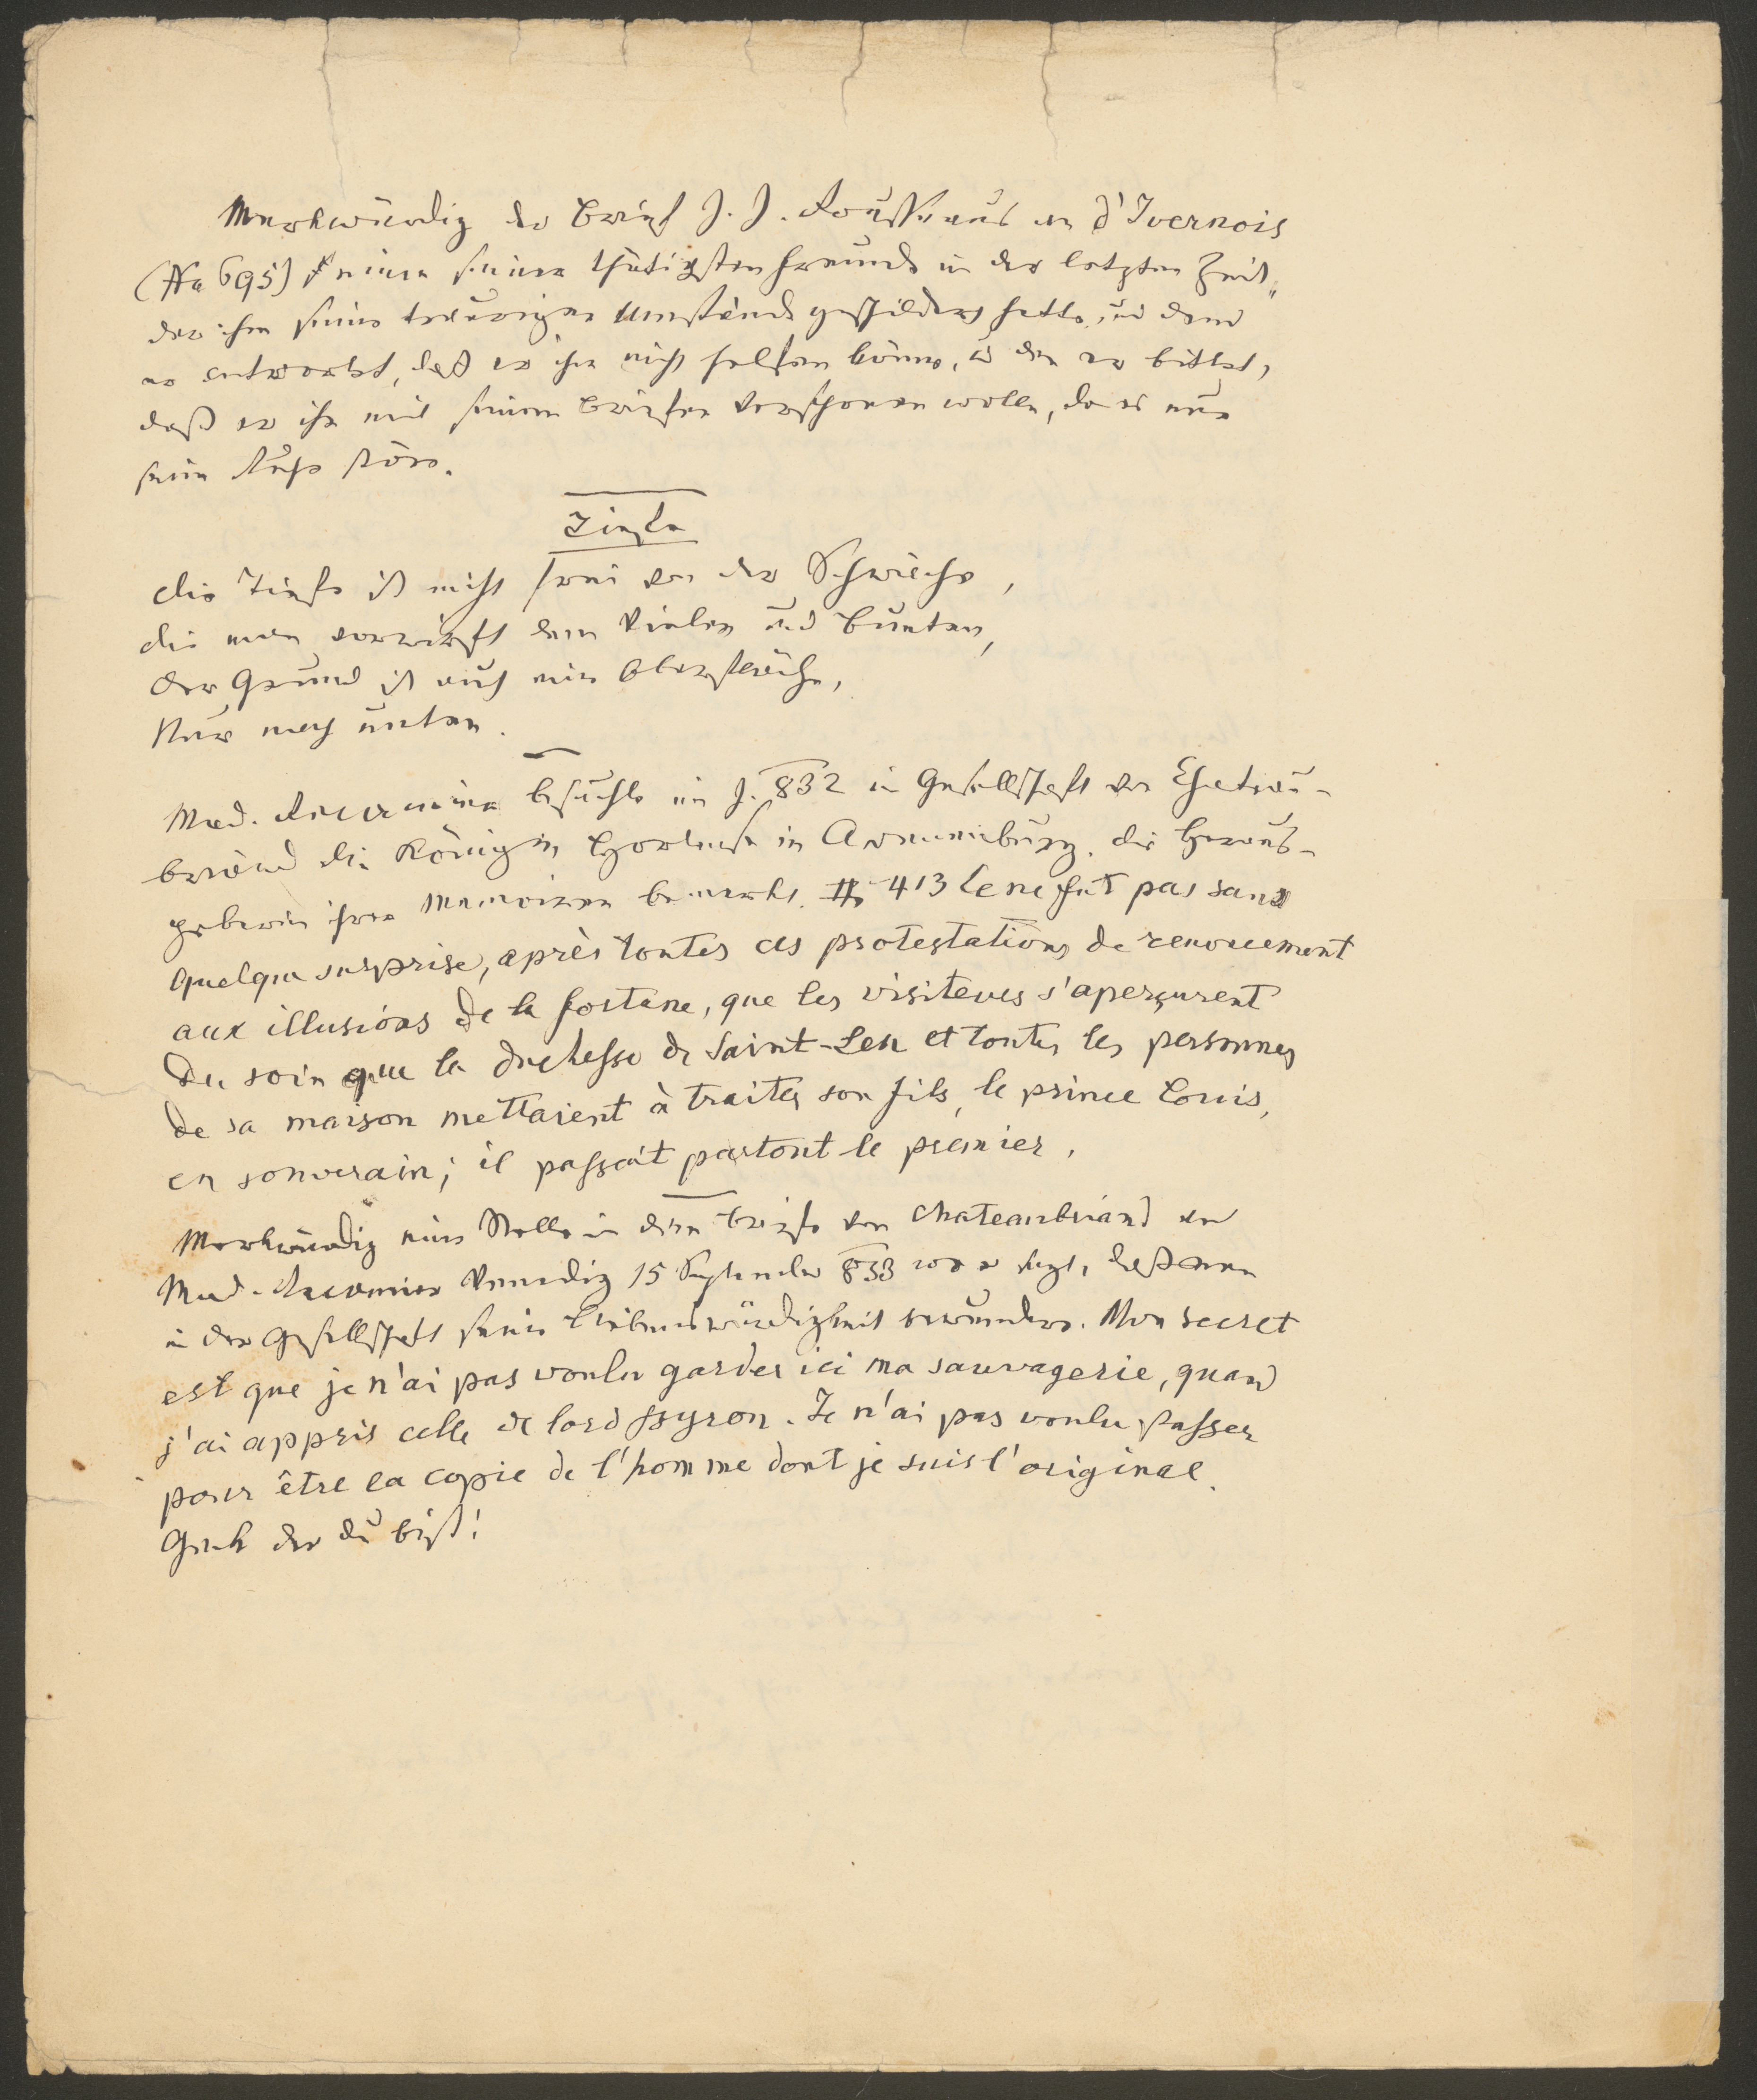 Merkwürdig der Brief J. J. Rousseaus an d'Ivernois
(No 695) einen seiner thätigsten Freunde in der letzten Zeit,
der ihm seine traurigen Umstände geschildert hatte, und dem
er antwortet, daß er ihm nicht helfen könne, u den er bittet,
daß er ihn mit seinen Briefen verschonen wolle, da es nur
seine Ruhe störe.
Tiefe
Die Tiefe ist nicht frei von der Schwäche,
die man vorwirft dem Vielen und Bunten,
Der Grund ist auch eine Oberfläche,
Nur nach unten.
Mad. Recamier besuchte im J. 832 in Gesellschaft von Chateau-
briand die Königin Hortense in Arenenburg. die Heraus-
geberin ihrer Memoiren bemerkt. 413 Ce ne fut pas sans
quelque surprise, après toutes ces protestations de renoncement
aux illusions de la fortune, que les visiteurs s'aperçurent
du soin que la duchesse de Saint-Leu et toutes les personnes
de sa maison mettaient à traiter son fils, le prince Louis,
en souverain; il passait partout le premier.
Merkwürdig eine Stelle in dem Briefe von Chateaubriand an
Mad. Recamier Venedig 15 September 833 wo er sagt, daß man
in der Gesellschaft seine Liebenswürdigkeit bewundere. Mon secret
est que je n'ai pas voulu garder ici ma sauvagerie, quand
j'ai appris celle de lord Byron. Je n'ai pas voulu passer
pour être la copie de l'homme dont je suis l'original.
Geck der du bist!